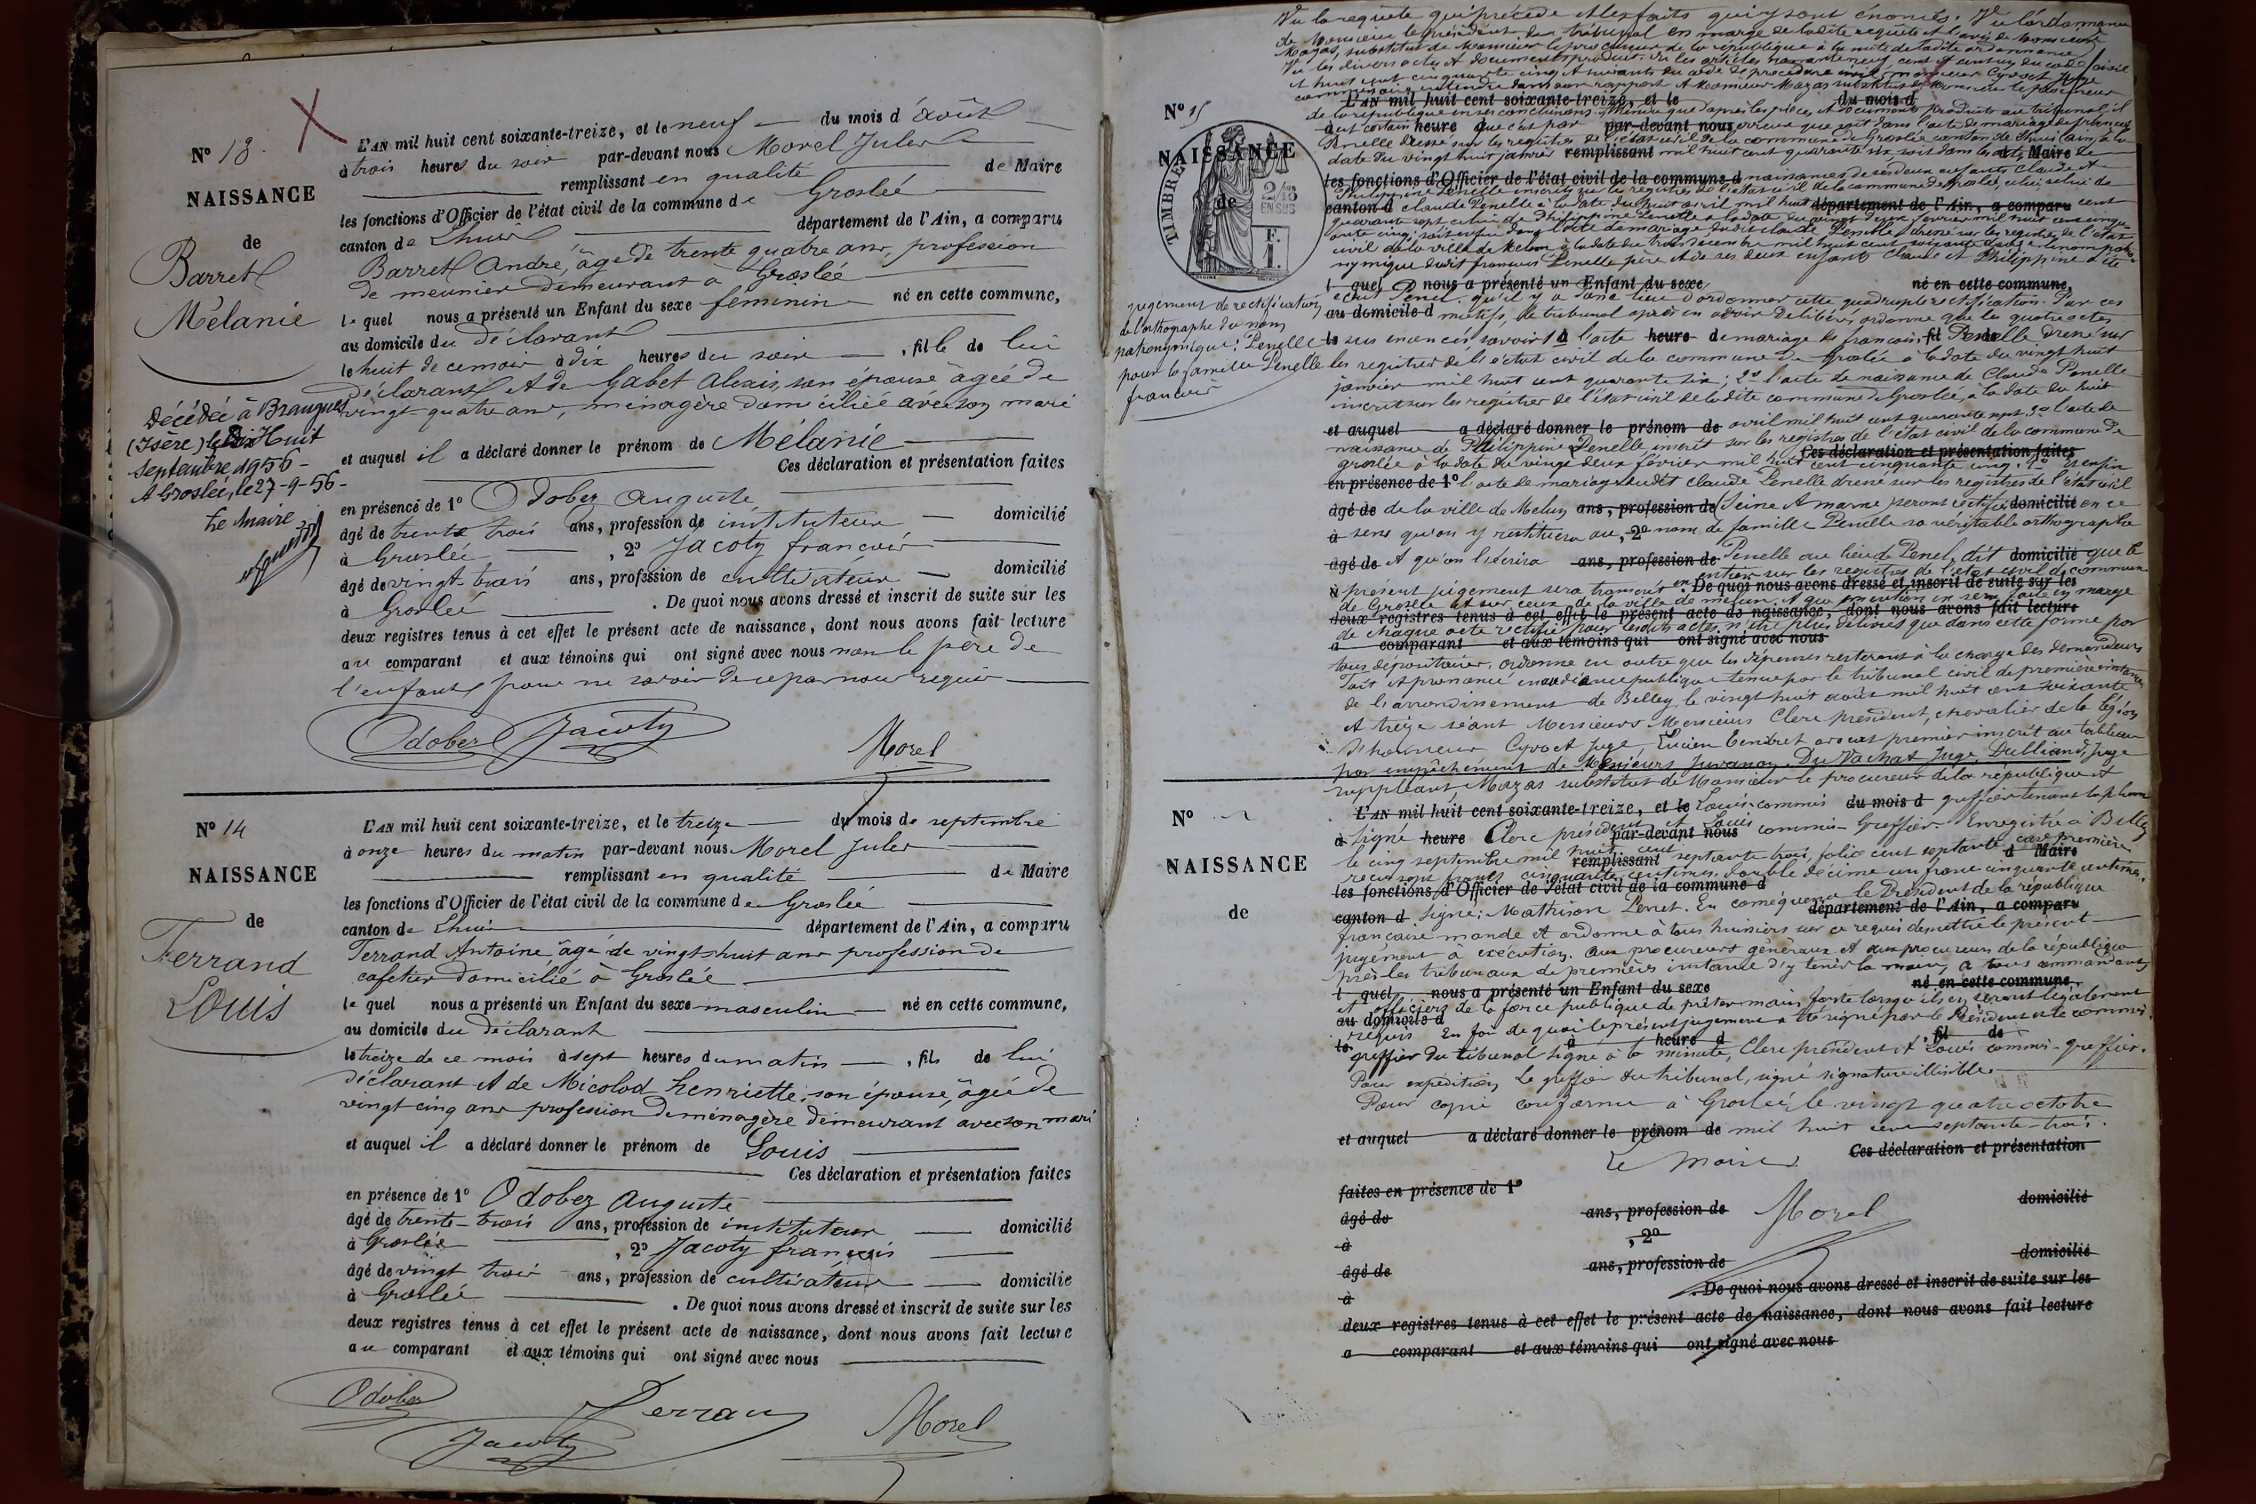 N° 13.
NAISSANCE
de
Barret
Mélanie
Décédée à Brangues
(Isère) le Dix Huit
Septembre 1956 -
A Groslée, le 27-9-56 -
Le Maire
L'AN mil huit cent soixante-treize, et le neuf du mois d'août
à trois heures du soir par-devant nous Morel Jules
remplissant en qualité de Maire
les fonctions d'Officier de l'état civil de la commune de Groslée
canton de Lhuis département de l'Ain, a comparu
Barret André, âgé de trente quatre ans, profession
de meunier demeurant à Groslée
lequel nous a présenté un Enfant du sexe féminin né en cette commune,
au domicile du déclarant
le huit de ce mois à dix heures du soir, fille de lui
déclarant et de Gabet Alexis, son épouse âgée de
vingt-quatre ans, ménagère domiciliée avec son mari
et auquel il a déclaré donner le prénom de Mélanie
Ces déclaration et présentation faites
en présence de 1° Odobez Auguste
âgé de trente trois ans, profession de instituteur domicilié
à Groslée, 2° Jacoty françois
âgé de vingt-trois ans, profession de cultivateur domicilié
à Groslée. De quoi nous avons dressé et inscrit de suite sur les
deux registres tenus à cet effet le présent acte de naissance, dont nous avons fait lecture
au comparant et aux témoins qui ont signé avec nous non le père de
l'enfant pour ne savoir de ce par nous requis
Odobez Jacoty
Morel
N° 14
NAISSANCE
de
Ferrand
Louis
L'AN mil huit cent soixante-treize, et le treize du mois de septembre
à onze heures du matin par-devant nous Morel Jules
remplissant en qualité de Maire
les fonctions d'Officier de l'état civil de la commune de Groslée
canton de Lhuis département de l'Ain, a comparu
Ferrand Antoine, âgé de vingt-huit ans profession de
cafetier domicilié à Groslée
lequel nous a présenté un Enfant du sexe masculin né en cette commune,
au domicile du déclarant
le treize de ce mois à sept heures du matin, fils de lui
déclarant et de Micolod henriette, son épouse, âgée de
vingt cinq ans profession de ménagère demeurant avec son mari
et auquel il a déclaré donner le prénom de Louis
Ces déclaration et présentation faites
en présence de 1° Odobez Auguste
âgé de trente-trois ans, profession de instituteur domicilié
à Groslée, 2° Jacoty françois
âgé de vingt trois ans, profession de cultivateur domicilié
à Groslée. De quoi nous avons dressé et inscrit de suite sur les
deux registres tenus à cet effet le présent acte de naissance, dont nous avons fait lecture
au comparant et aux témoins qui ont signé avec nous
Odobez
Ferrand
Jacoty
Morel
N° 15
NAISSANCE
de
TIMBRE
2/10 EN SUS
F.
1.
jugement de rectification
de l'orthographe du nom
patronymique: Penelle
pour la famille Penelle
françois
Vu la requête qui précède et les faits qui y sont énoncés. Vu l'ordonnance
de Monsieur le président du tribunal en marge de ladite requête et l'avis de Monsieur
Mazas, substitut de Monsieur le procureur de la république à la suite de ladite ordonnance
Vu les divers actes et documents produits. Vu les articles
et huit cent cinquante cinq et suivants du code de procédure civile
L'AN mil huit cent soixante-treize, et le du mois d
heure par-devant nous
date du vingt huit janvier remplissant mil huit cent quarante six, soit dans les actes de Maire
les fonctions d'Officier de l'état civil de la commune d naissances de ses deux enfants Claude et
canton d claude Penelle à la date du huit avril mil huit département de l'Ain, a comparu cent
nymique dudit françois Penelle père et de ses deux enfants Claude et Philippine a été
l quel nous a présenté un Enfant du sexe né en cette commune,
écrit Penel. qu'il y a donc lieu d'ordonner cette quadruple rectification. Par ces
au domicile d motifs, le tribunal après en avoir délibéré, ordonne que les quatre actes
le sus énoncés, savoir 1° à l'acte heure de mariage de françois fil Penelle de dressé sur
les registres de l'état civil de la commune de Groslée à la date du vingt huit
janvier mil huit cent quarante six; 2° l'acte de naissance de Claude Penelle
inscrit sur les registres de l'état civil de ladite commune de Groslée, à la date du huit
et auquel a déclaré donner le prénom de avril mil huit cent quarante sept. 3° l'acte de
naissance de Philippine Penelle, inscrit sur les registres de l'état civil de la commune de
Ces déclaration et présentation faites
groslée à la date du vingt deux février mil huit cent cinquante cinq. 4° Et enfin
en présence de 1° l'acte de mariage dudit claude Penelle dressé sur les registres de l'état civil
âgé de de la ville de Melun ans, profession de (Seine et marne) seront rectifiés domicilié en ce
à sens qu'on y restituera au, 2° nom de famille Penelle sa véritable orthographe
âgé de et qu'on l'écrira ans, profession de Penelle au lieu de Penel, dit domicilié que le
à présent jugement sera transcrit en entier sur les registres de l'état civil de la commune
De quoi nous avons dressé et inscrit de suite sur les
de Groslée et sur ceux de la ville de melun. et que mention en sera faite en marge
deux registres tenus à cet effet le présent acte de naissance, dont nous avons fait lecture
de chaque acte rectifié pour lesdits actes n'être plus délivrés que dans cette forme par
a comparant et aux témoins qui ont signé avec nous
tous dépositaires. ordonne en outre que les dépenses resteront à la charge des demandeurs
Fait et prononcé en audience publique tenue par le tribunal civil de première instance
de l'arrondissement de Belley, le vingt huit août mil huit cent soixante
et treize séant Messieurs Messieurs Clerc président, chevalier de la légion
d'honneur Cyvoct juge, Lucien Tendret avocat premier inscrit au tableau
par empêchement de Messieurs Juvanon Du Vachat Juge, Dulliand, Juge
suppléant, Mazas substitut de Monsieur le procureur de la république et
N°
NAISSANCE
de
L'AN mil huit cent soixante-treize, et le Louis commis du mois d greffier tenant la plume
à Signé heure Clerc président par-devant nous et Louis commis-Greffier. Enregistré à Belley
le cinq septembre mil huit cent septante trois, folio cent septante case première
remplissant d Maire
reçu sept francs cinquante centimes, double décime un franc cinquante centimes.
les fonctions d'Officier de l'état civil de la commune d
canton d Signé: Mathison Perret. En conséquence le Président de la république
département de l'Ain, a comparu
française mande et ordonne à tous huissiers sur ce requis de mettre le présent
jugement à exécution. aux procureurs généraux et aux procureurs de la république
près les tribunaux de premières instance d'y tenir la main, à tous commandants
l quel nous a présenté un Enfant du sexe né en cette commune,
et officiers de la force publique de prêter main forte lorsqu'ils en seront légalement
au domicile d
requis En foi de quoi le présent jugement a été signé par le Président et le commis
le à heure d , fil de
greffier du tribunal signé à la minute, Clerc président et Louis commis-greffier.
Pour expédition Le greffier du tribunal, signé signature illisible
Pour copie conforme à Groslée, le vingt quatre octobre
et auquel a déclaré donner le prénom de mil huit cent septante-trois.
Ces déclaration et présentation
Le Maire
faites en présence de 1°
âgé de ans, profession de Morel domicilié
à , 2°
âgé de ans, profession de domicilié
à . De quoi nous avons dressé et inscrit de suite sur les
deux registres tenus à cet effet le présent acte de naissance, dont nous avons fait lecture
a comparant et aux témoins qui ont signé avec nous